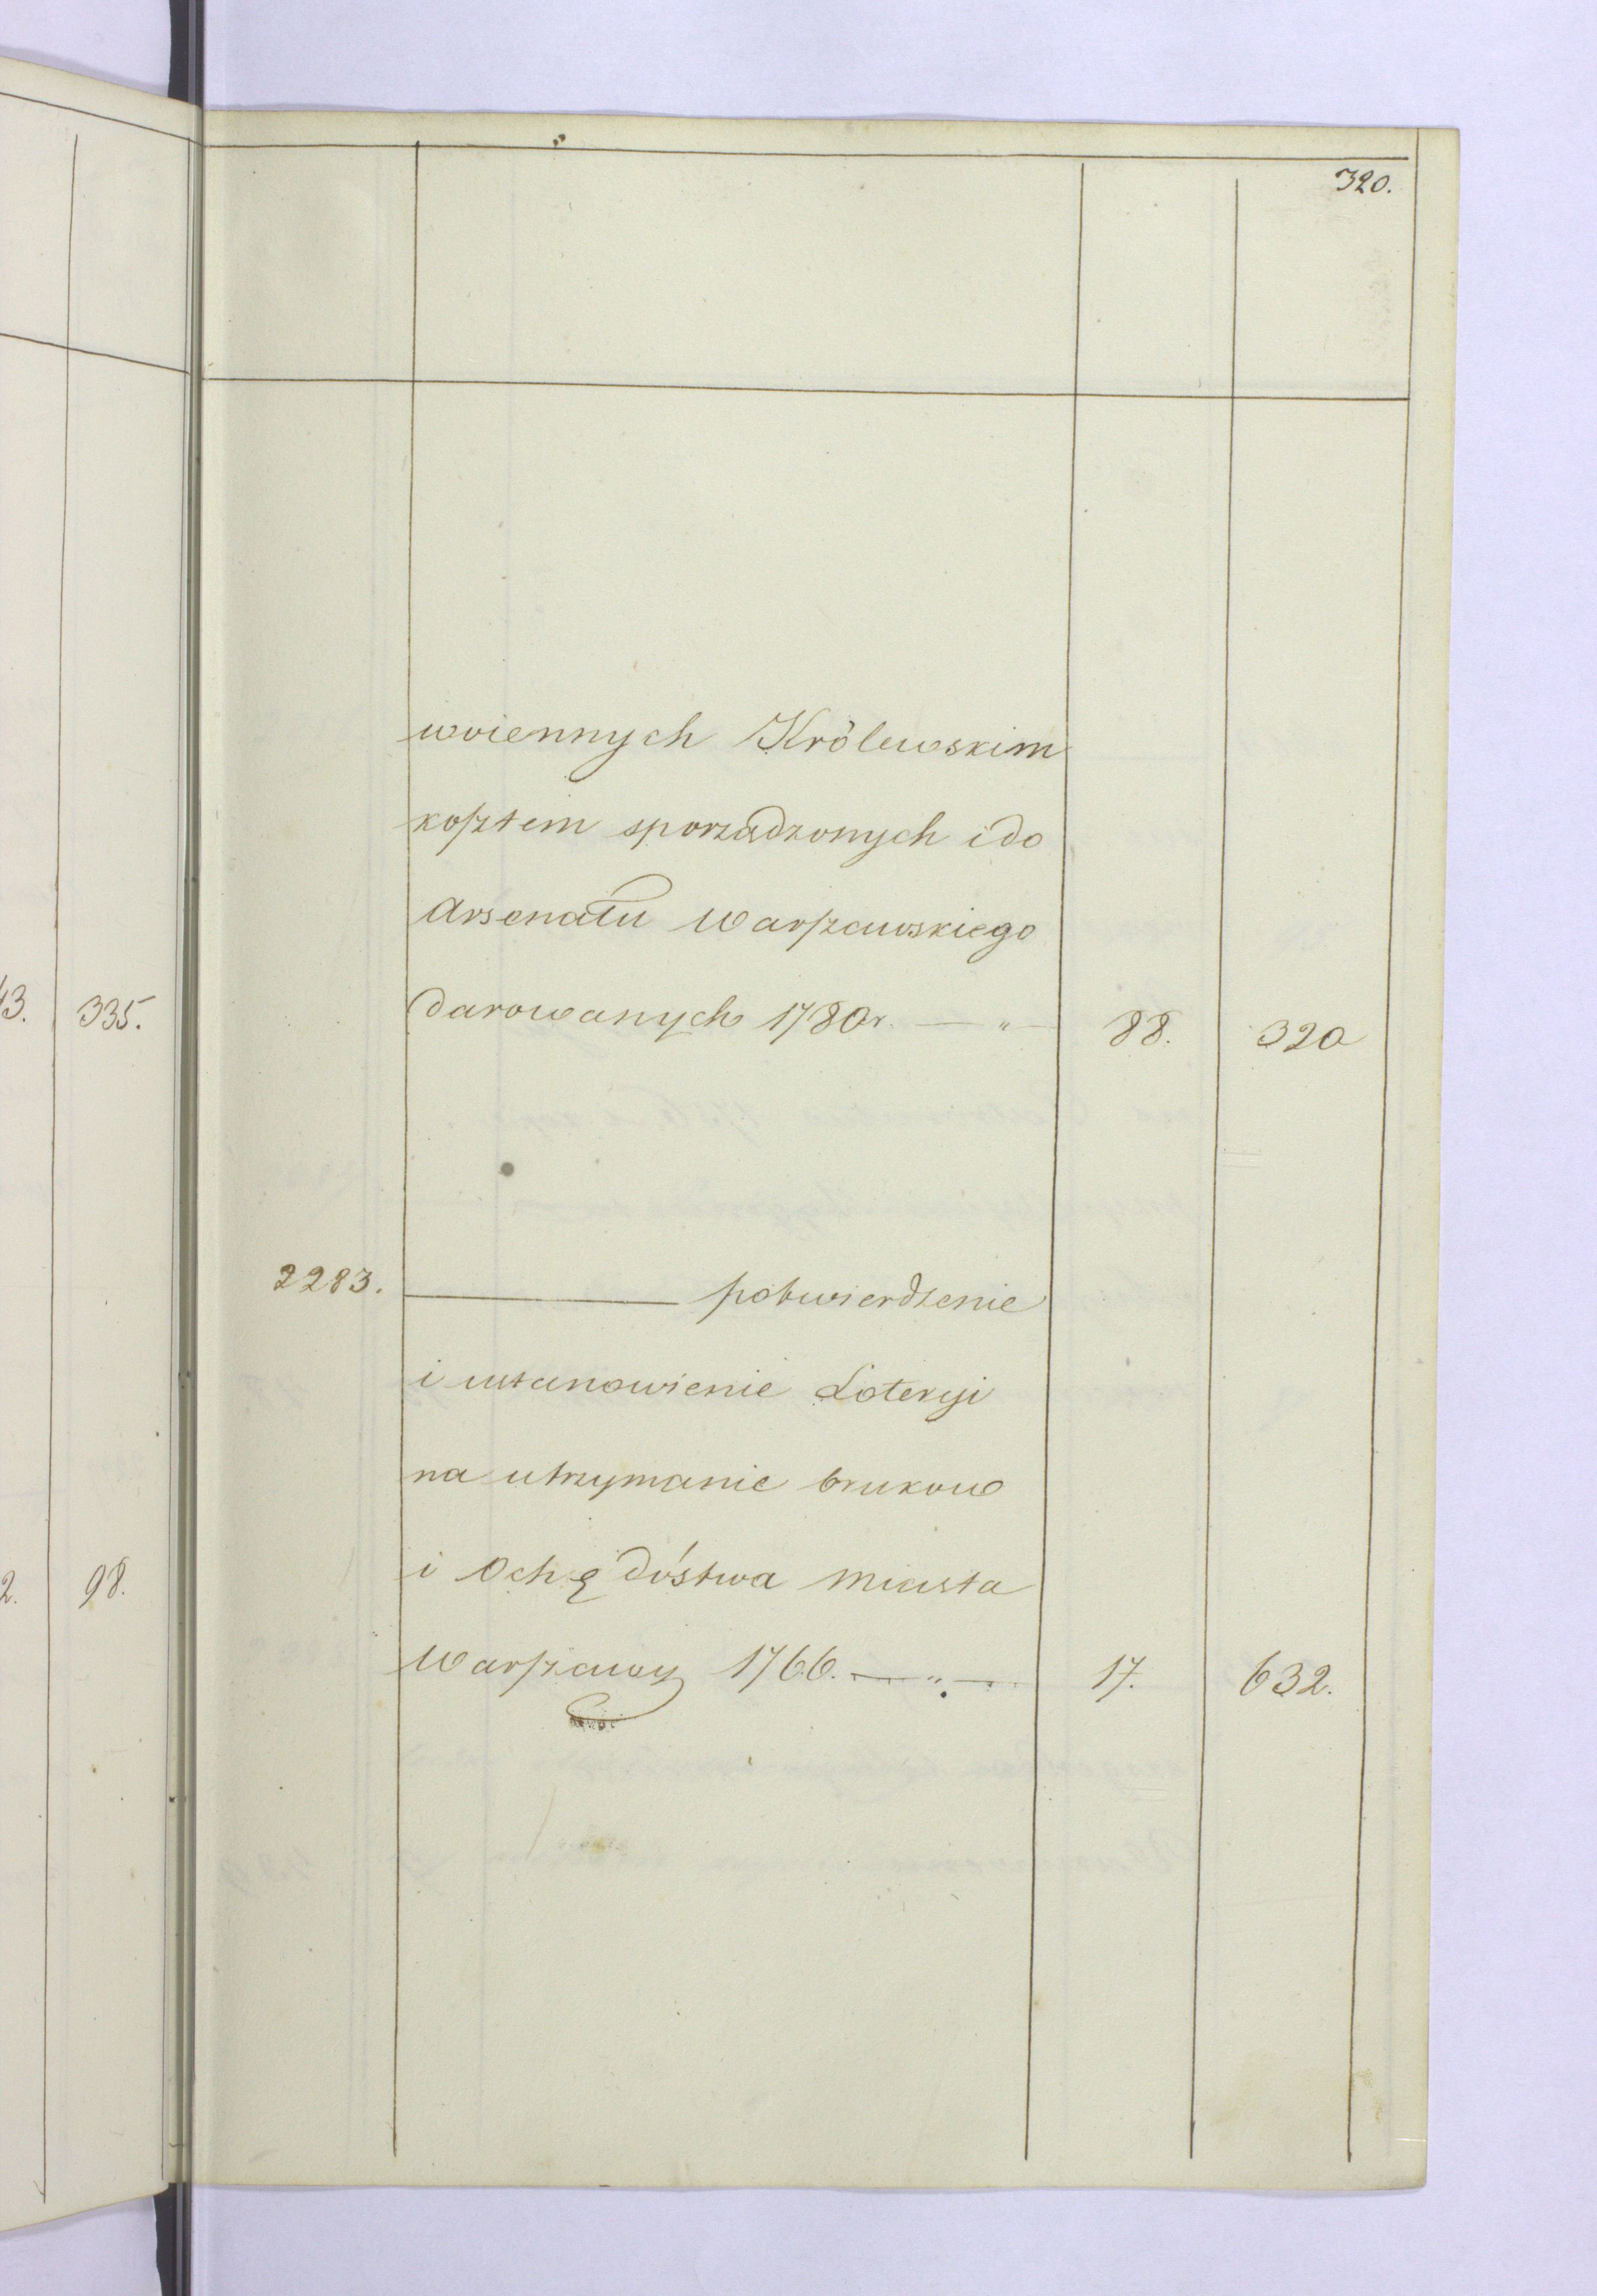 320.
woiennych Królewskim
kosztem sporządzonych i do
Arsenału Warszawskiego
darowanych 1780r. — „ — 88. 320
43. 335.
2283. ——— potwierdzenie
i ustanowienie Loteryi
na utrzymanie brukow
i Ochędóstwa Miasta
Warszawy 1766. — „ — 17. 632.
2. 98.